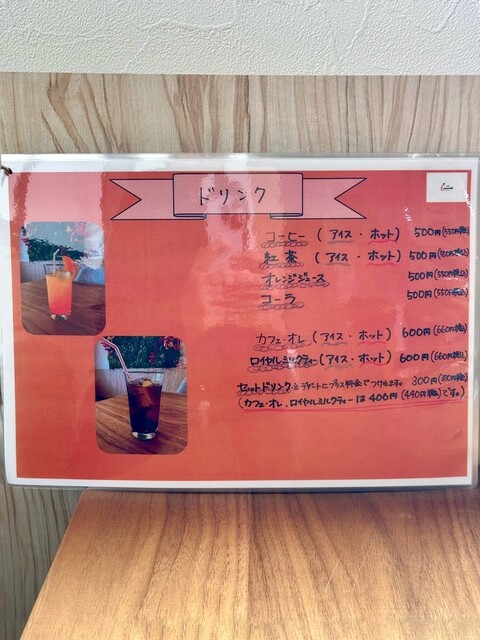 ドリンク
コーヒー (アイス・ホット) 500円(550円税込)
紅茶 (アイス・ホット) 500円(550円税込)
オレンジジュース 500円(550円税込)
コーラ 500円(550円税込)
カフェ・オレ (アイス・ホット) 600円(660円税込)
ロイヤルミルクティー(アイス・ホット) 600円(660円税込)
セットドリンク デザートにプラス料金でつけます。 300円(330円税込)
(カフェ・オレ、ロイヤルミルクティーは400円(440円税込)です。)